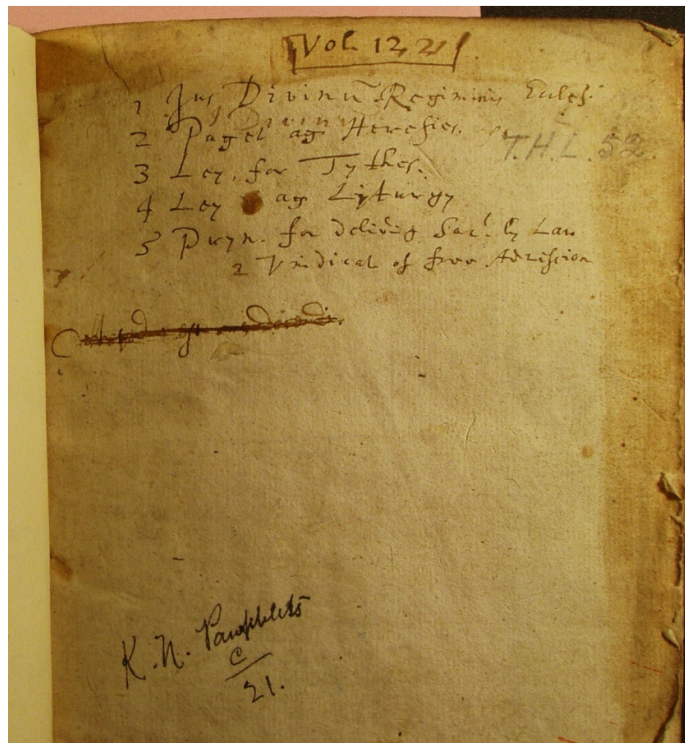 Vol. 12, 21
1 Jus Divinū Regiminis Eccles.
2 Paget ag Heresies.
T.H.L. 52.
3 Ley. for Tythes.
4 Ley ag Liturgy
5 Pryn. for Sac.t by Law
2 Vindicat of free Admission
K. N. Pamphlets
C
21.